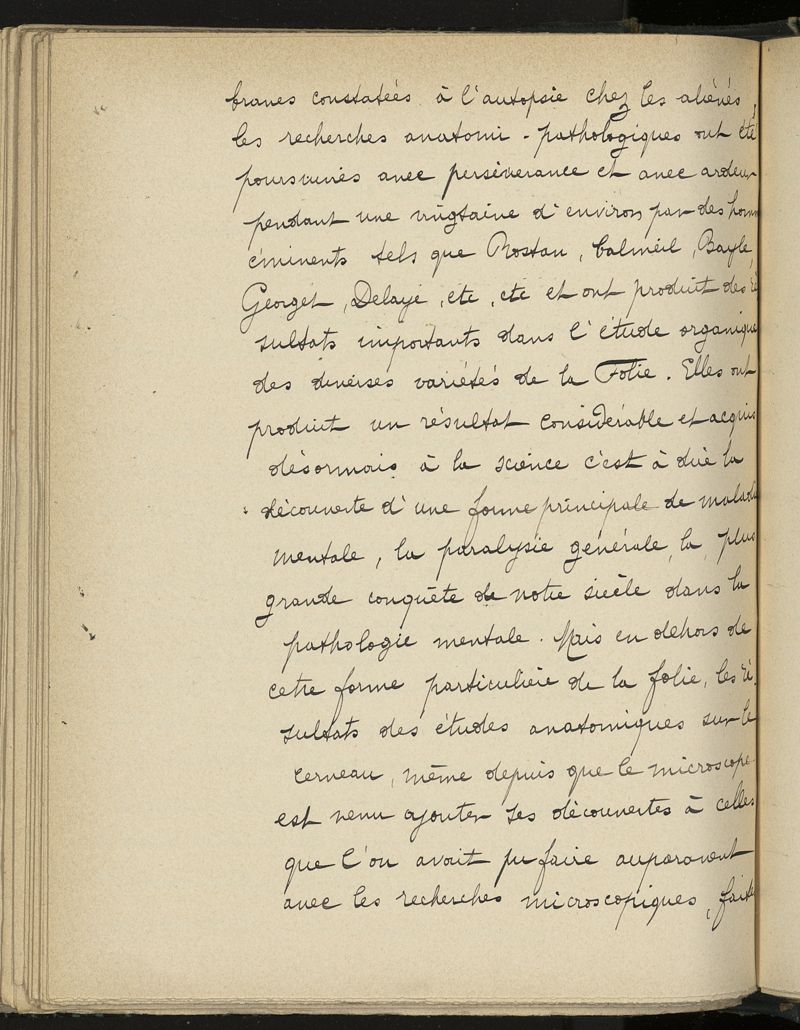 branes constatées à l'autopsie chez les aliénés,
les recherches anatomi-pathologiques ont été
poursuivies avec persévérance et avec ardeur
pendant une vingtaine d'environ par des hom
éminents tels que Rostan, Calmeil, Bayle,
Georget, Delaye, etc, etc et ont produit des ré
sultats importants dans l'étude organique
des diverses variétés de la Folie. Elles ont
produit un résultat considérable et acquis
désormais à la science c'est à dire la
découverte d'une forme principale de maladie
mentale, la paralysie générale, la plus
grande conquête de notre siècle dans la
pathologie mentale. Mais en dehors de
cette forme particulière de la folie, les ré-
sultats des études anatomiques sur le
cerveau, même depuis que le microscope
est venu ajouter ses découvertes à celles
que l'on avait pu faire auparavant
avec les recherches microscopiques, faites